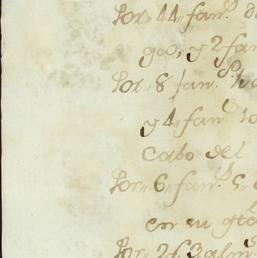 Por 44 fan.
go, y 2 fan
Por 8 fan.
y 4 fan.
Cabo del
Por 6 fan. 5
en su
Por 2 f. 3 alm